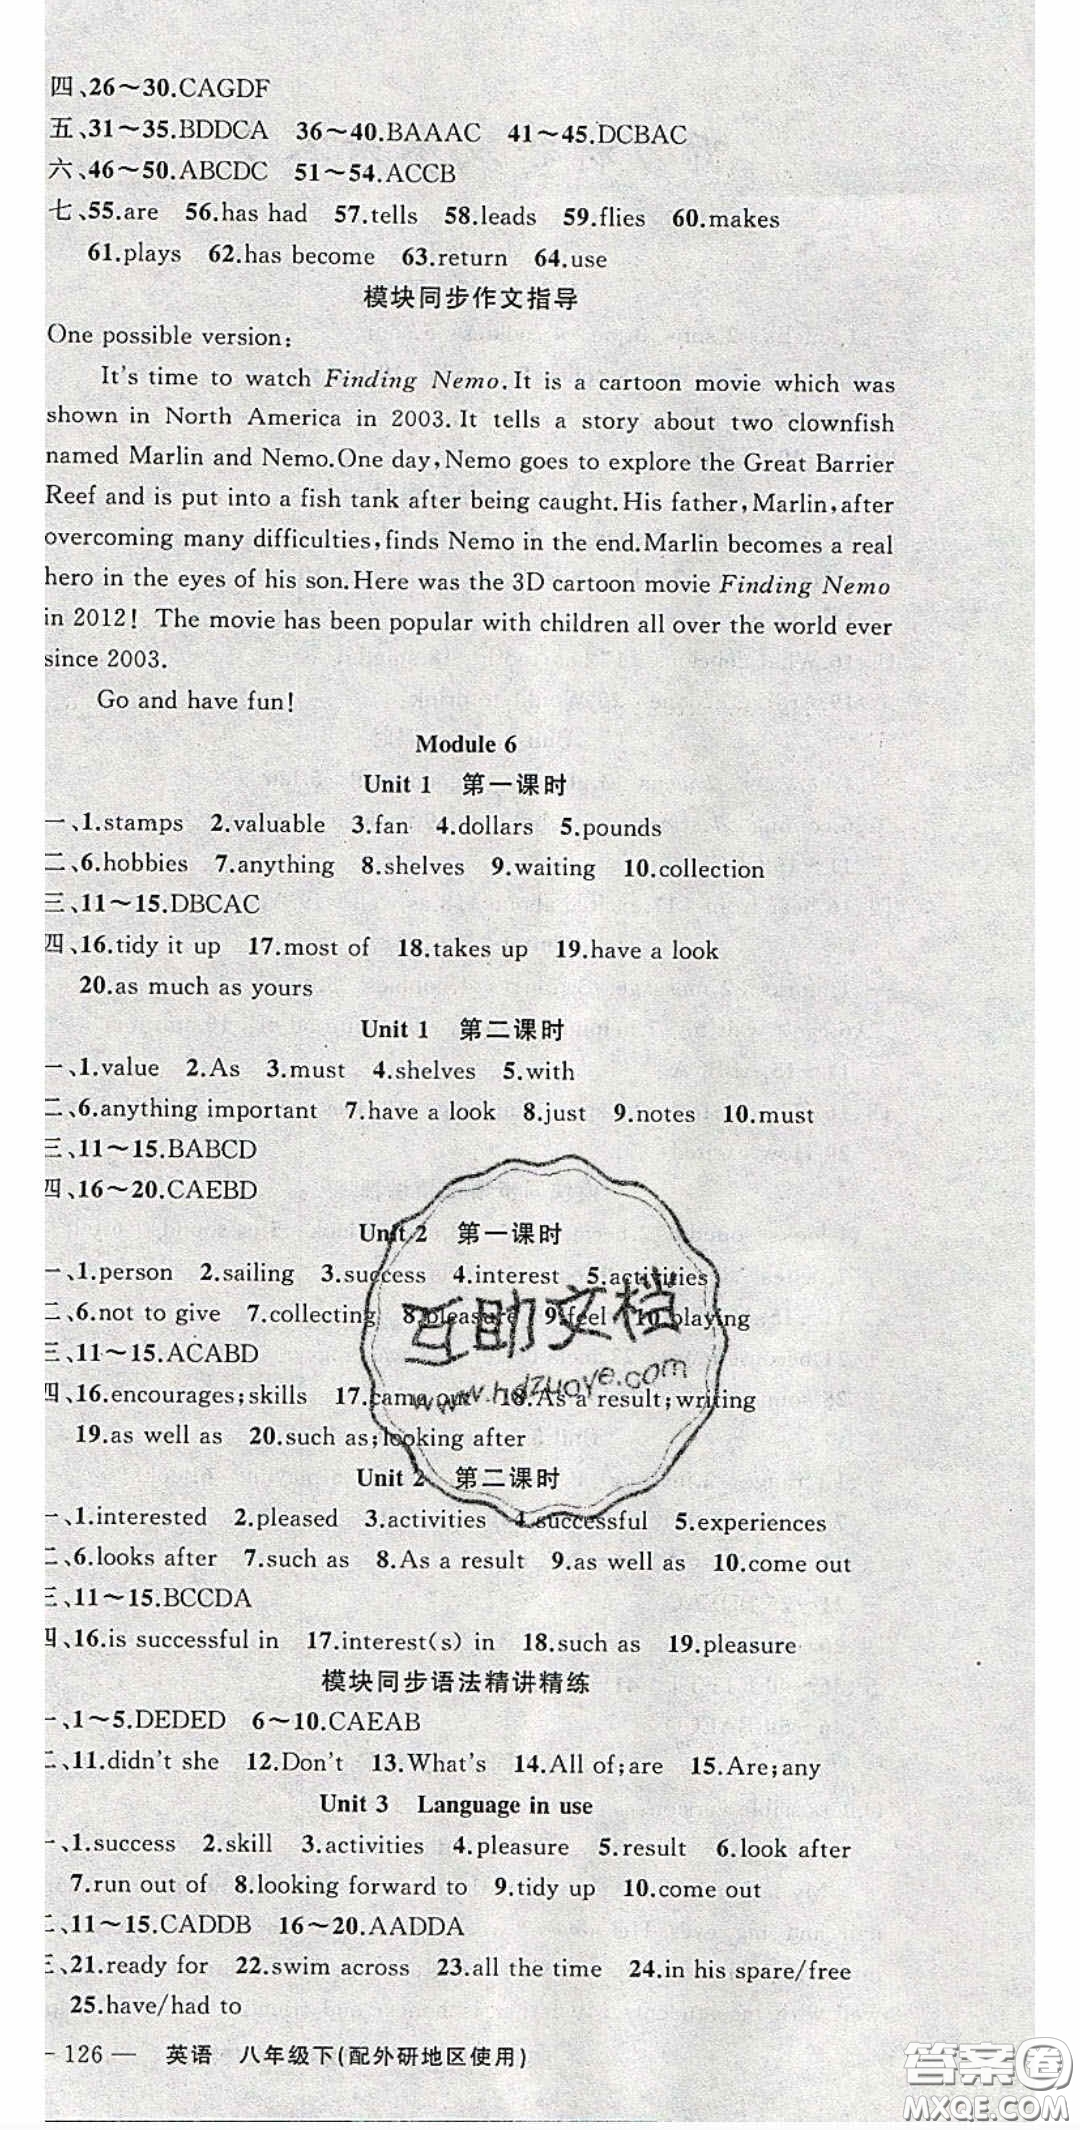 四、26～30.CAGDF
五、31～35.BDDCA 36～40.BAAAC 41～45.DCBAC
六、46～50.ABCDC 51～54.ACCB
七、55.are 56.has had 57.tells 58.leads 59.flies 60.makes
61.plays 62.has become 63.return 64.use
模块同步作文指导
One possible version:
It's time to watch Finding Nemo.It is a cartoon movie which was
shown in North America in 2003.It tells a story about two clownfish
named Marlin and Nemo.One day,Nemo goes to explore the Great Barrier
Reef and is put into a fish tank after being caught.His father,Marlin,after
overcoming many difficulties,finds Nemo in the end.Marlin becomes a real
hero in the eyes of his son.Here was the 3D cartoon movie Finding Nemo
in 2012! The movie has been popular with children all over the world ever
since 2003.
Go and have fun!
Module 6
Unit 1 第一课时
一、1.stamps 2.valuable 3.fan 4.dollars 5.pounds
二、6.hobbies 7.anything 8.shelves 9.waiting 10.collection
三、11～15.DBCAC
四、16.tidy it up 17.most of 18.takes up 19.have a look
20.as much as yours
Unit 1 第二课时
一、1.value 2.As 3.must 4.shelves 5.with
二、6.anything important 7.have a look 8.just 9.notes 10.must
三、11～15.BABCD
四、16～20.CAEBD
Unit 2 第一课时
一、1.person 2.sailing 3.success 4.interest 5.activities
二、6.not to give 7.collecting 8.pleasure 9.feel 10.playing
三、11～15.ACABD
四、16.encourages;skills 17.came out 18.As a result;writing
19.as well as 20.such as;looking after
Unit 2 第二课时
一、1.interested 2.pleased 3.activities 4.successful 5.experiences
二、6.looks after 7.such as 8.As a result 9.as well as 10.come out
三、11～15.BCCDA
四、16.is successful in 17.interest(s) in 18.such as 19.pleasure
模块同步语法精讲精练
一、1～5.DEDED 6～10.CAEAB
二、11.didn't she 12.Don't 13.What's 14.All of;are 15.Are;any
Unit 3 Language in use
一、1.success 2.skill 3.activities 4.pleasure 5.result 6.look after
7.run out of 8.looking forward to 9.tidy up 10.come out
二、11～15.CADDB 16～20.AADDA
三、21.ready for 22.swim across 23.all the time 24.in his spare/free
25.have/had to
— 126 — 英语 八年级下(配外研地区使用)
互助文档
www.hdzuoye.com
答案圈
MXQE.COM